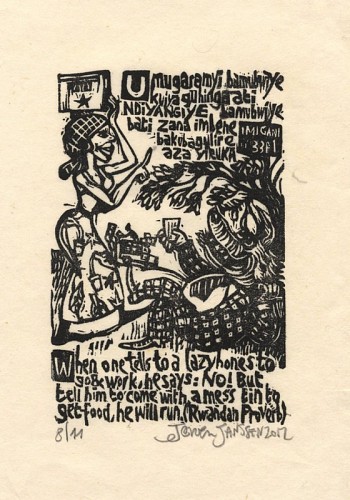 Umugaramyi bamubwiye
kujya guhinga ati
NDIYANGIYE, bamubwiye
bati zana imbehe
bakubagulire
aza yiruka
IMIGANI
3381
When one tells to a lazyhones to
go & work, he says: No! But
tell him to come with a mess tin to
get food, he will run. (Rwandan Proverb)
8/11 Jeroen Janssen 2012